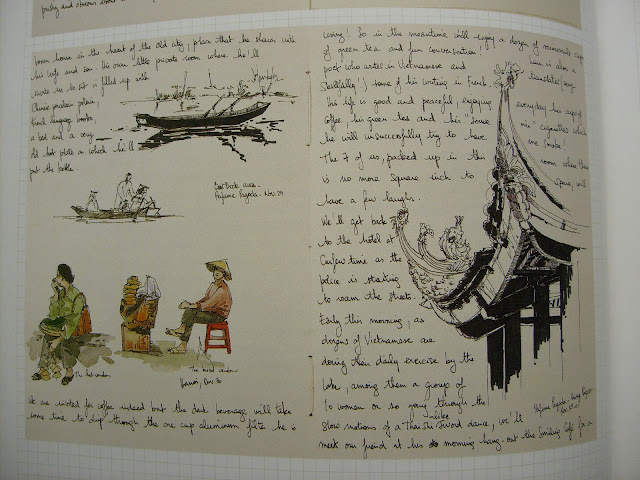 town house in the heart of the old city, place that he shares with
his wife and son. His own little private room where he'll
invite us to sit is filled up with
Chinese porcelain potein,
French language books,
a bed and a very
old hot plate on which he'll
put the kettle
Boat Dock area.
Perfume Pagoda - Nov. 29
The hat vendor
The bread vendor
Hanoi, Dec. 30
We are invited for coffee indeed but the dark beverage will take
some time to drip through the one cup aluminum filtre he is
using. So in the meantime we'll enjoy a dozen of minuscule cups
of green tea and fun conversation!
poet who writes in Vietnamese and
skillfully) some of his writing in French.
his life is good and peaceful, enjoying
coffee, his green tea and his
he will unsuccessfully try to have
The 7 of us, packed up in this
is no more square inch to
have a few laughs.
We'll get back
to the hotel at
Curfew time as the
police is starting
to roam the streets.
Early this morning, as
dozens of Vietnamese are
doing their daily exercise by the
lake, among them a group of
10 women or so going through the
slow motions of a Thai Shi like Sword dance, we'll
meet our friend at his morning hang-out the Smiling Café for a
is also a
translates
everyday his cup of
cigarettes which
me smoke!
room where there
space, will
Perfume Pagoda